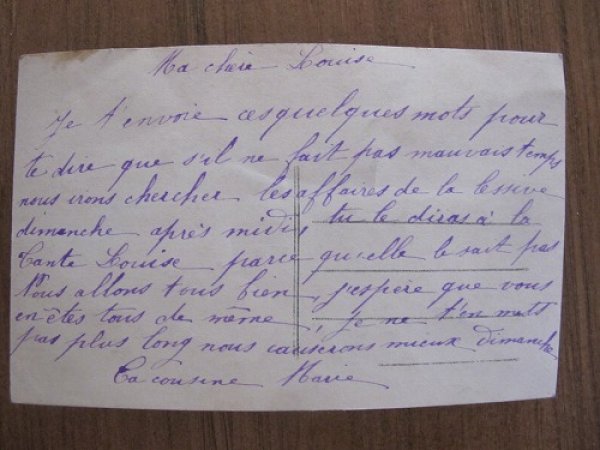 Ma chère Louise
Je t'envoie ces quelques mots pour
te dire que s'il ne fait pas mauvais temps
nous irons chercher les affaires de la lessive
dimanche après midi, tu le diras à la
Tante Louise parce qu'elle le sait pas
Nous allons tous bien, j'espère que vous
en êtes tous de même, je ne t'en mets
pas plus long nous causerons mieux dimanche
Ta cousine Marie